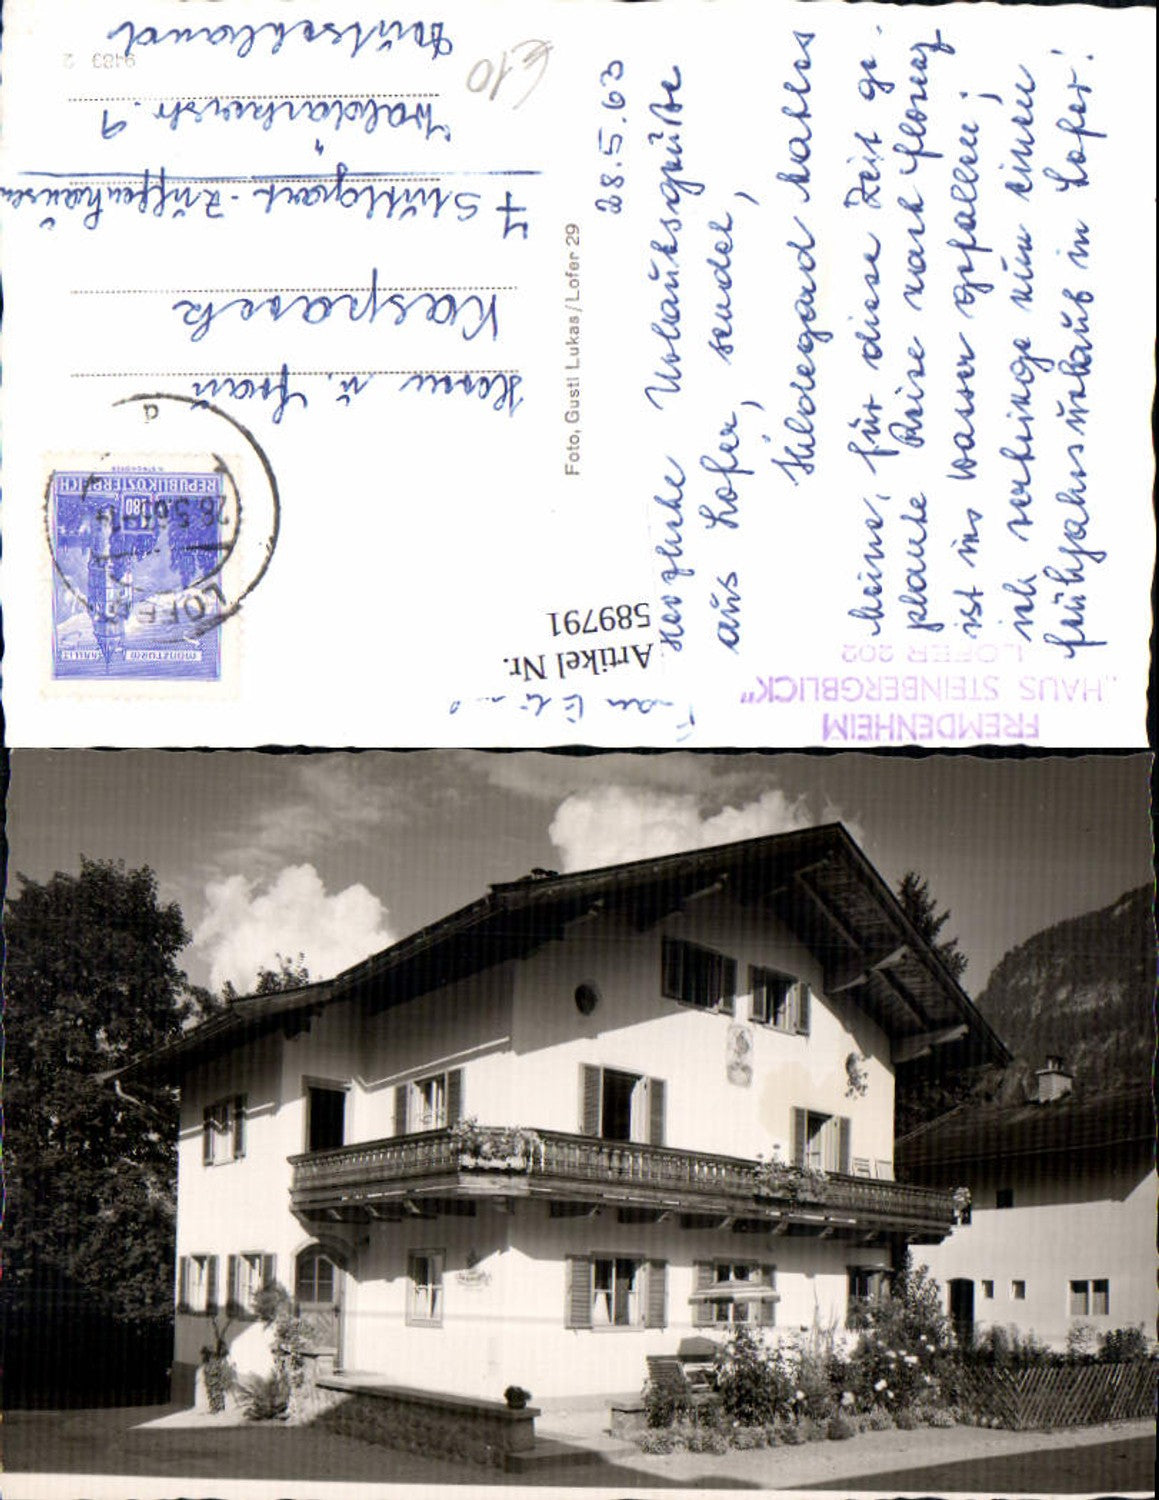 FREMDENHEIM
„HAUS STEINBERGBLICK"
LOFER 202
28.5.63
Herzliche Urlaubsgrüße
aus Lofer, sendet,
Hildegard
meine, für diese Zeit ge-
plante Reise nach Florenz
ist ins Wasser gefallen;
ich verbringe nun einen
Frühjahrsurlaub in Lofer!
Foto, Gustl Lukas/Lofer 29
Artikel Nr.
589791
REPUBLIK ÖSTERREICH
S 1.80
MÜNZTURM
HALL I.T.
LOFER
28.5.63-14
a
Herrn u. Frau
Kasparek
7 Stuttgart-Zuffenhausen
9
Deutschland
9483 2
€10